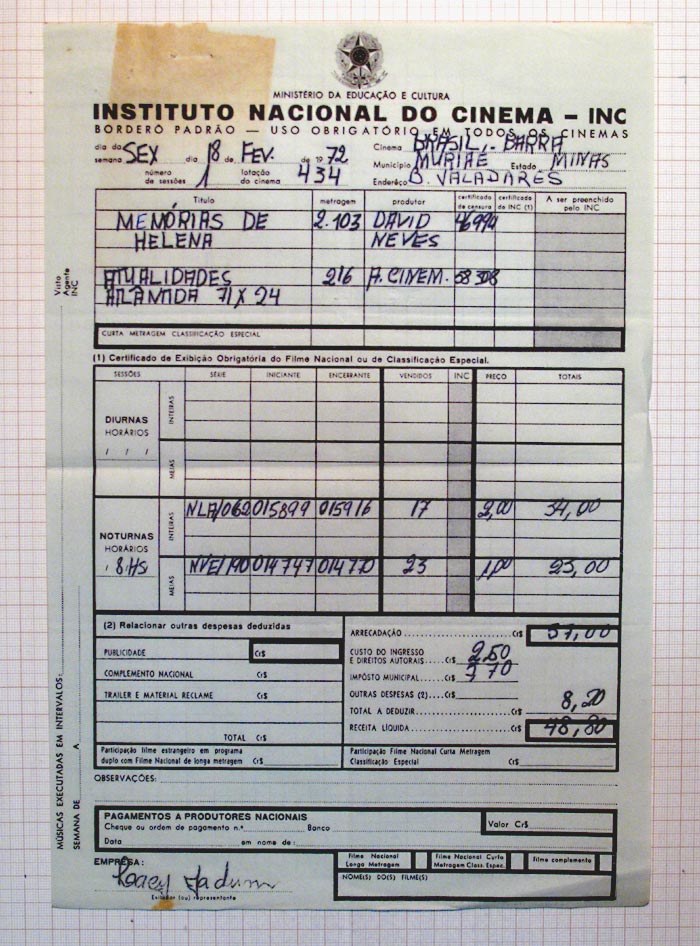 MINISTÉRIO DA EDUCAÇÃO E CULTURA
INSTITUTO NACIONAL DO CINEMA — INC
BORDERÔ PADRÃO — USO OBRIGATÓRIO EM TODOS OS CINEMAS
dia da semana SEX dia 18 de FEV. de 1972 Cinema BRASIL - BARRA
Município MURIAÉ Estado MINAS
número de sessões 1 lotação do cinema 434 Endereço B. VALADARES
Título metragem produtor certificado de censura certificado do INC (1) A ser preenchido pelo INC
MEMÓRIAS DE 2.103 DAVID 46994
HELENA NEVES
ATUALIDADES 216 A. CINEM. 58308
ATLÂNTIDA 71 X 24
CURTA METRAGEM CLASSIFICAÇÃO ESPECIAL
(1) Certificado de Exibição Obrigatória do Filme Nacional ou de Classificação Especial.
SESSÕES SÉRIE INICIANTE ENCERRANTE VENDIDOS INC PREÇO TOTAIS
DIURNAS
HORÁRIOS
INTEIRAS
MEIAS
NOTURNAS
HORÁRIOS
8 HS
INTEIRAS NLA/062 015899 015916 17 2,00 34,00
MEIAS NVE/190 014747 014770 23 1,00 23,00
(2) Relacionar outras despesas deduzidas
PUBLICIDADE Cr$
COMPLEMENTO NACIONAL Cr$
TRAILER E MATERIAL RECLAME Cr$
TOTAL Cr$
ARRECADAÇÃO Cr$ 57,00
CUSTO DO INGRESSO
E DIREITOS AUTORAIS Cr$ 2,50
IMPÔSTO MUNICIPAL Cr$ 5 70
OUTRAS DESPESAS (2) Cr$
TOTAL A DEDUZIR Cr$ 8,20
RECEITA LÍQUIDA Cr$ 48,80
Participação filme estrangeiro em programa
duplo com Filme Nacional de longa metragem Cr$
Participação Filme Nacional Curta Metragem
Classificação Especial Cr$
OBSERVAÇÕES:
PAGAMENTOS A PRODUTORES NACIONAIS
Cheque ou ordem de pagamento n.º Banco Valor Cr$
Data em nome de:
EMPRÊSA:
Exibidor (ou) representante
Filme Nacional Longa Metragem Filme Nacional Curta Metragem Class. Espec. Filme complemento
NOME(S) DO(S) FILME(S)
Visto Agente INC
MÚSICAS EXECUTADAS EM INTERVALOS:
SEMANA DE A